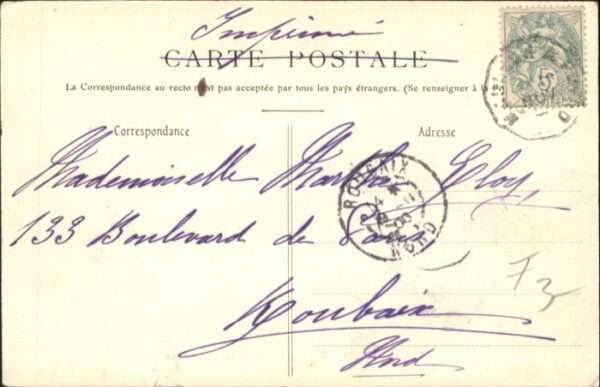 Imprimé
CARTE POSTALE
La Correspondance au recto n'est pas acceptée par tous les pays étrangers. (Se renseigner à la
Correspondance
Adresse
Mademoiselle Marthe Eloy,
133 Boulevard de Paris
Roubaix
Nord
ROUBAIX
NORD
5
F3